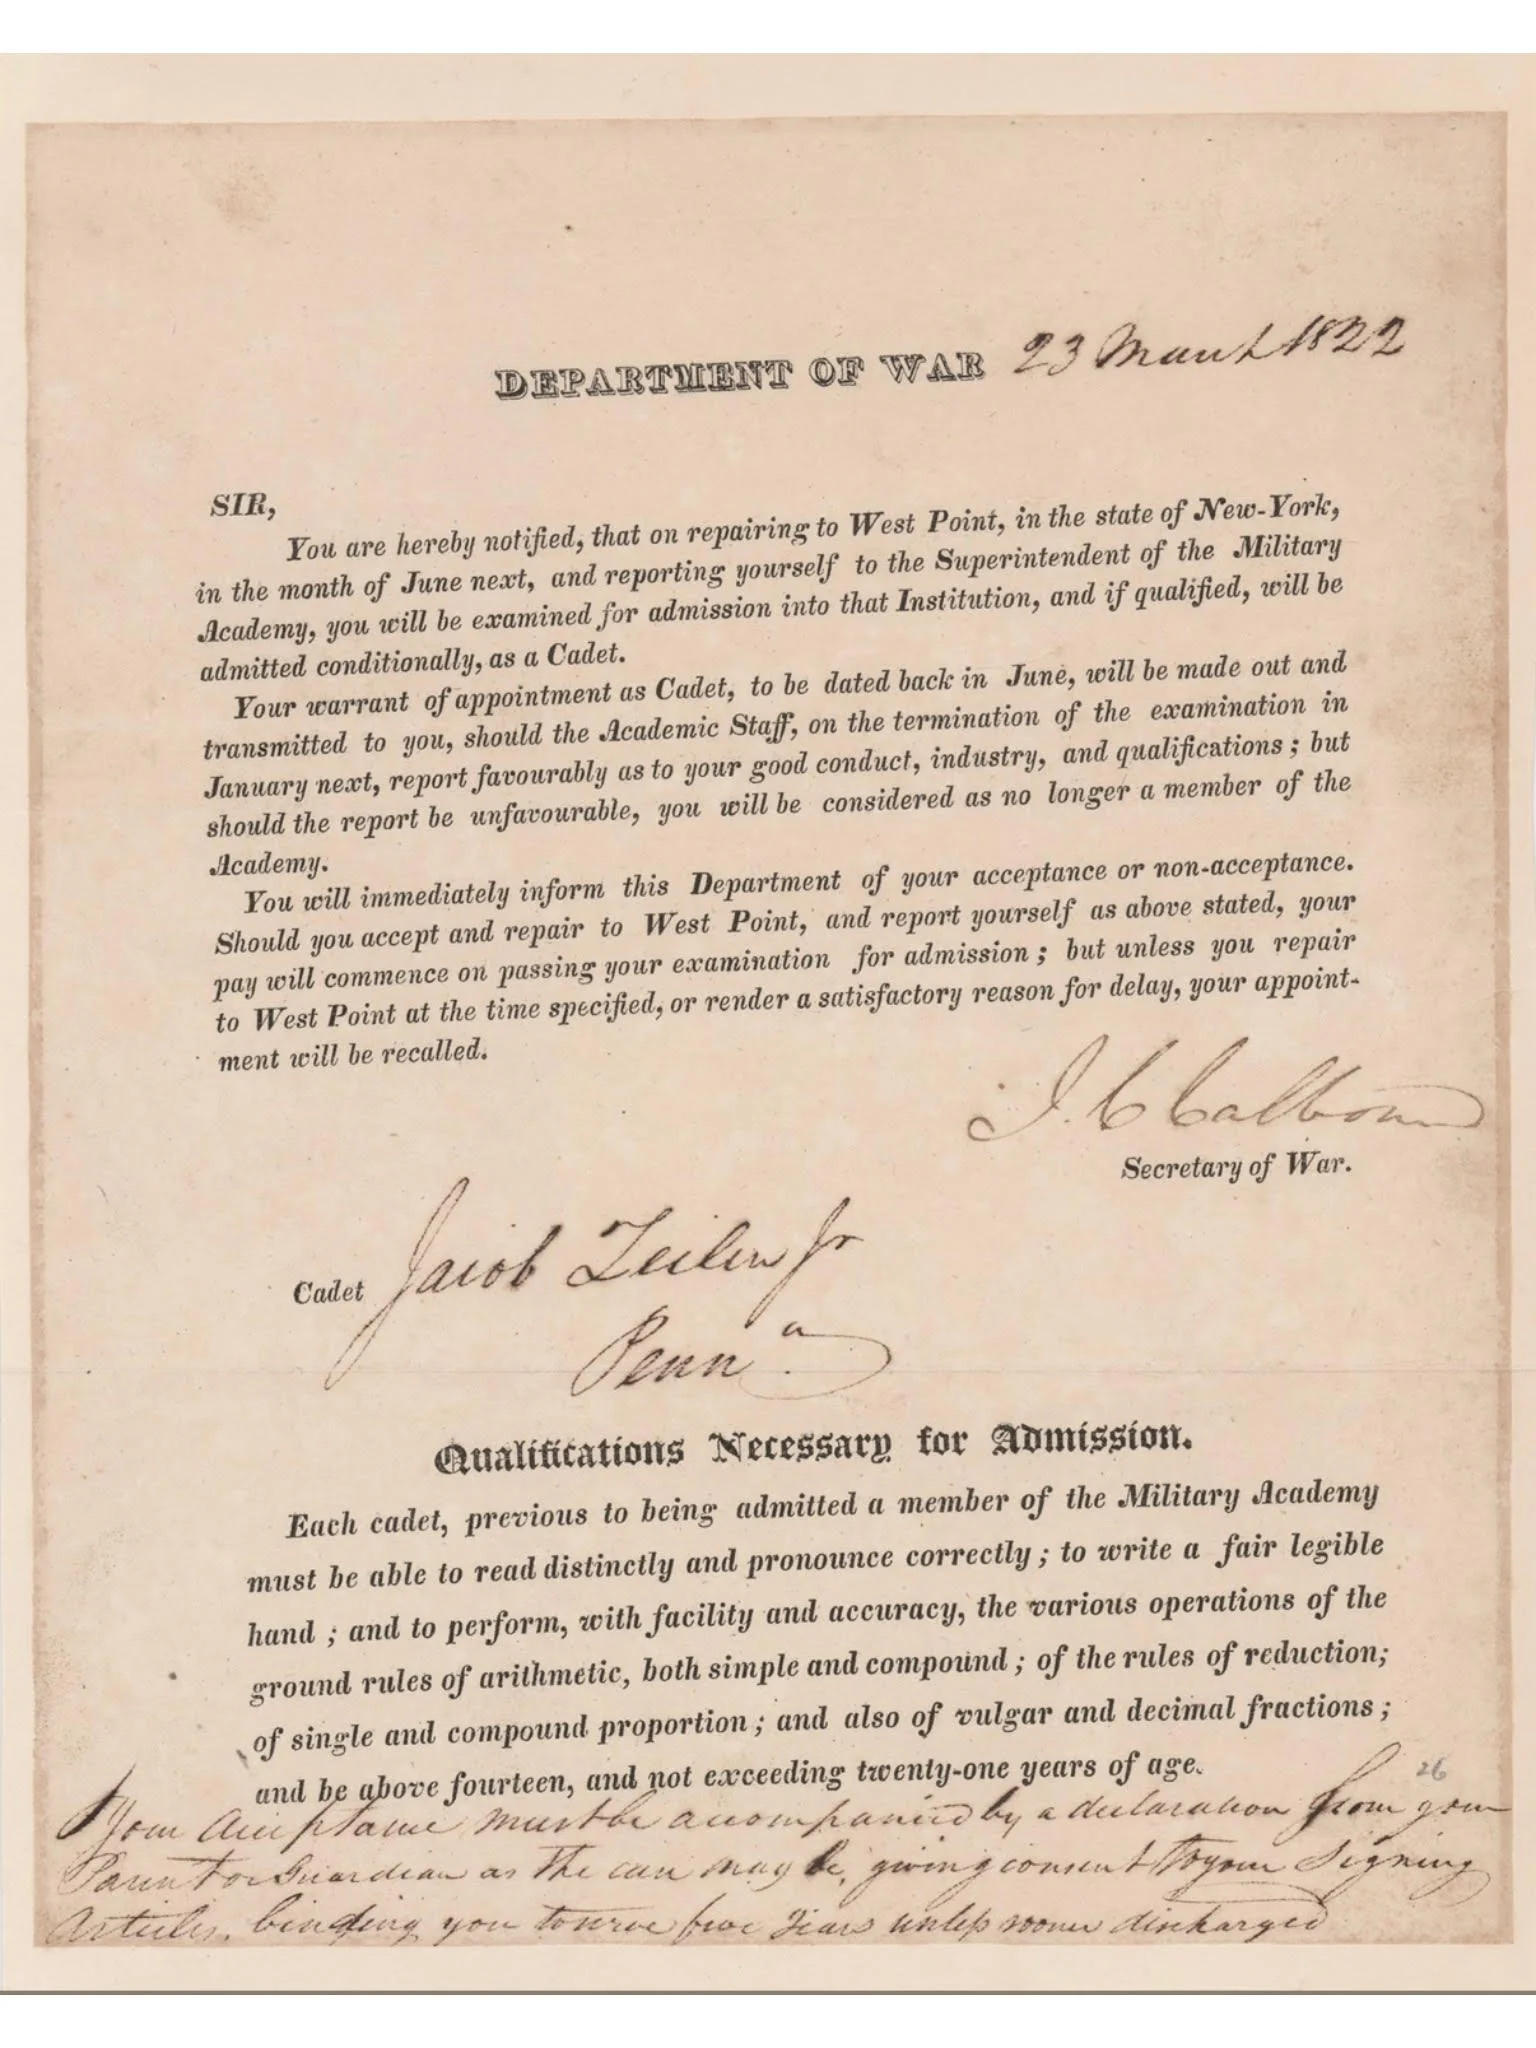 DEPARTMENT OF WAR 23 March 1822
SIR,
You are hereby notified, that on repairing to West Point, in the state of New-York,
in the month of June next, and reporting yourself to the Superintendent of the Military
Academy, you will be examined for admission into that Institution, and if qualified, will be
admitted conditionally, as a Cadet.
Your warrant of appointment as Cadet, to be dated back in June, will be made out and
transmitted to you, should the Academic Staff, on the termination of the examination in
January next, report favourably as to your good conduct, industry, and qualifications; but
should the report be unfavourable, you will be considered as no longer a member of the
Academy.
You will immediately inform this Department of your acceptance or non-acceptance.
Should you accept and repair to West Point, and report yourself as above stated, your
pay will commence on passing your examination for admission; but unless you repair
to West Point at the time specified, or render a satisfactory reason for delay, your appoint-
ment will be recalled.
J. C Calhoun
Secretary of War.
Cadet Jacob Zeilin Jr
Penna.
Qualifications Necessary for Admission.
Each cadet, previous to being admitted a member of the Military Academy
must be able to read distinctly and pronounce correctly; to write a fair legible
hand; and to perform, with facility and accuracy, the various operations of the
ground rules of arithmetic, both simple and compound; of the rules of reduction;
of single and compound proportion; and also of vulgar and decimal fractions;
and be above fourteen, and not exceeding twenty-one years of age.
26
Your acceptance must be accompanied by a declaration from your
Parent or Guardian as the case may be, giving consent to your signing
Articles, binding you to serve five Years unless sooner discharged